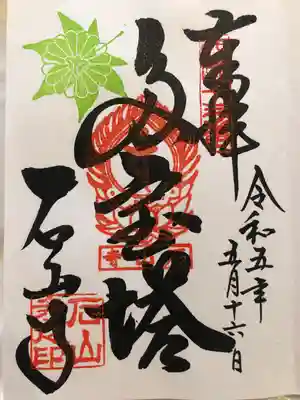 奉拝
令和五年
五月十六日
多宝塔
石山寺
石山